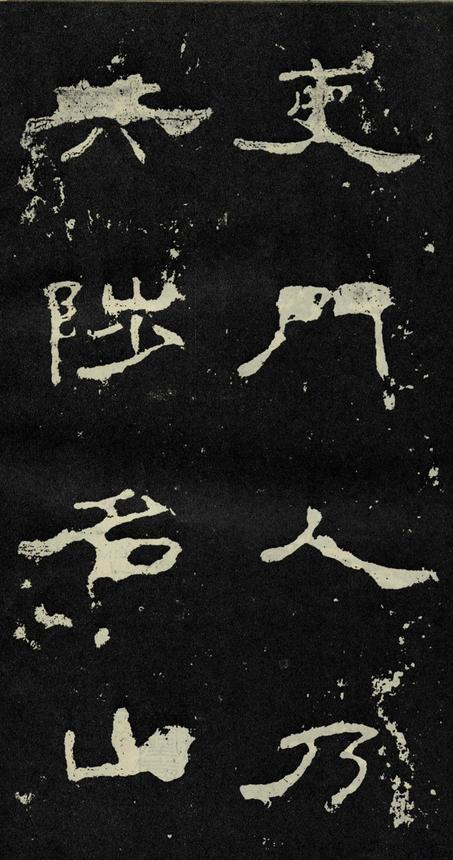 吏門人乃
共陟名山